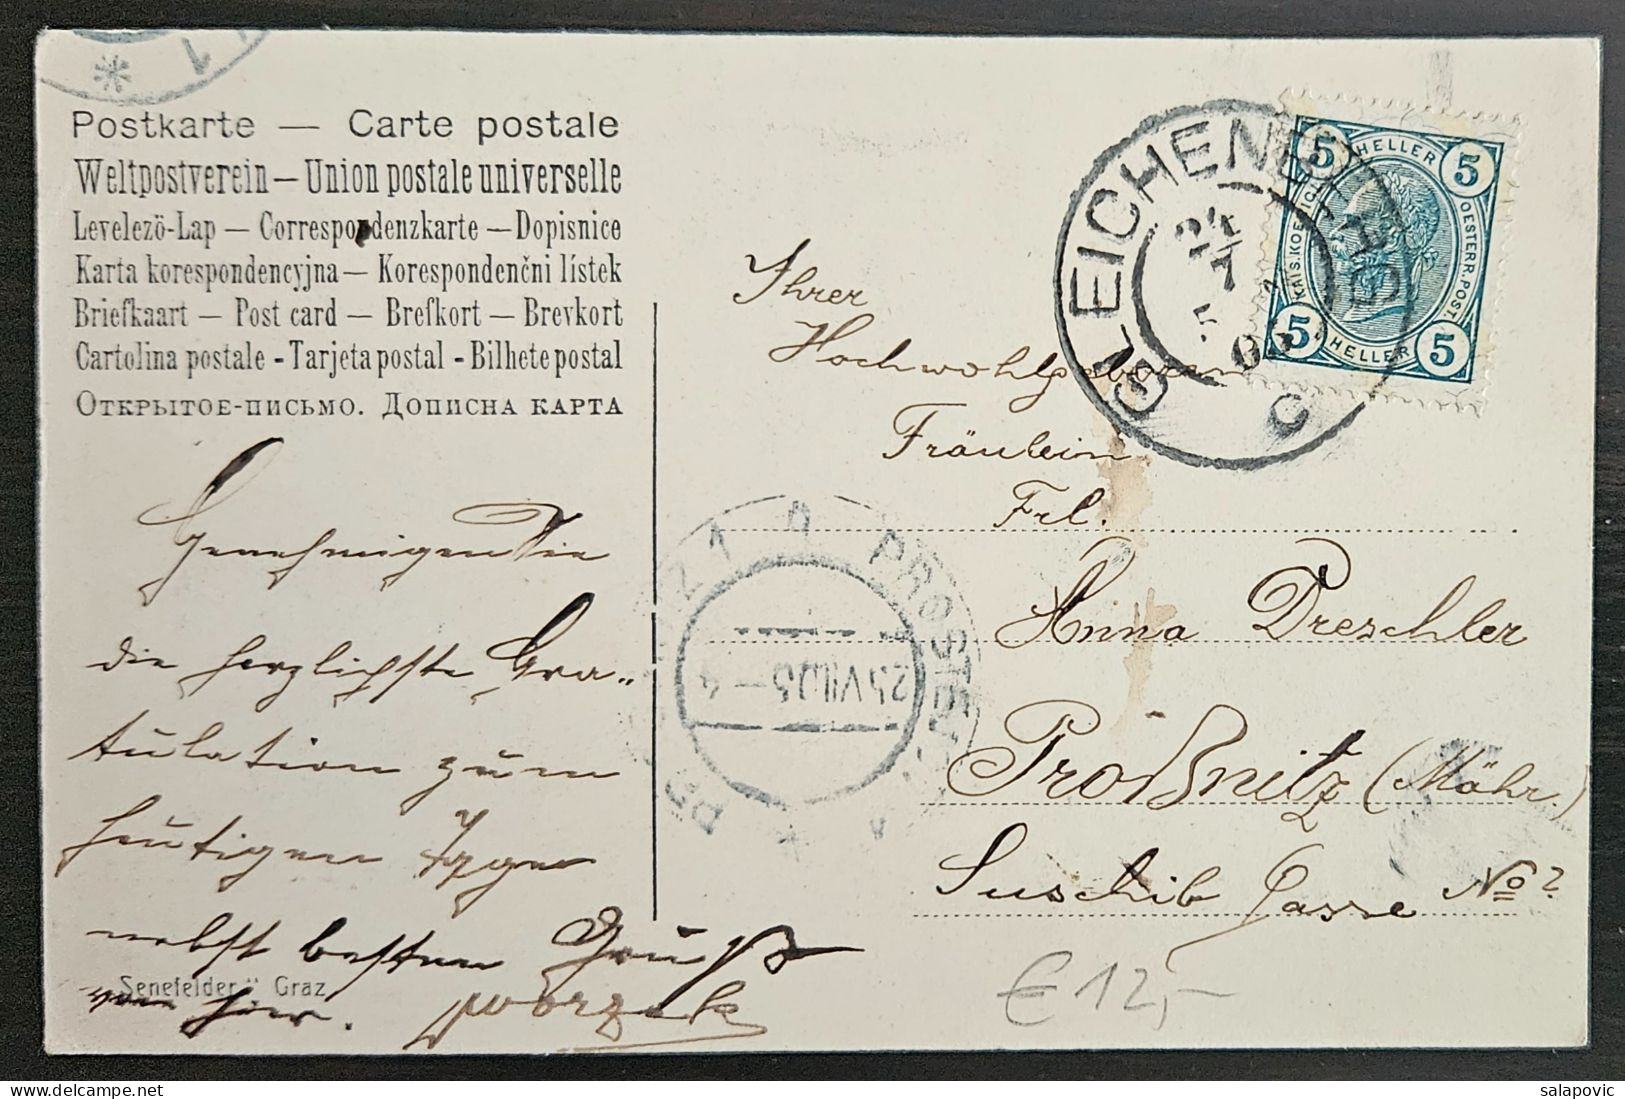 Postkarte — Carte postale
Weltpostverein — Union postale universelle
Levelezö-Lap — Correspondenzkarte — Dopisnice
Karta korespondencyjna — Korespondenčni lístek
Briefkaart — Post card — Brefkort — Brevkort
Cartolina postale - Tarjeta postal - Bilhete postal
Открытое-письмо. Дописна карта
Genehmigen Sie
die herzlichste Gra„
tulation zum
heutigen Tage
nebst besten Gruß
von hier.
Senefelder" Graz
GLEICHENBERG
24
7
C
5 HELLER 5
KAIS. KOENIGL. OESTERR. POST.
5 HELLER 5
Ihrer
Hochwohlgeboren
Fräulein
Frl.
Anna Dreschler
Proßnitz (Mähr.)
Gasse No 2
PROSTĚJOV
25 VII 05
€ 12,-
salapovic